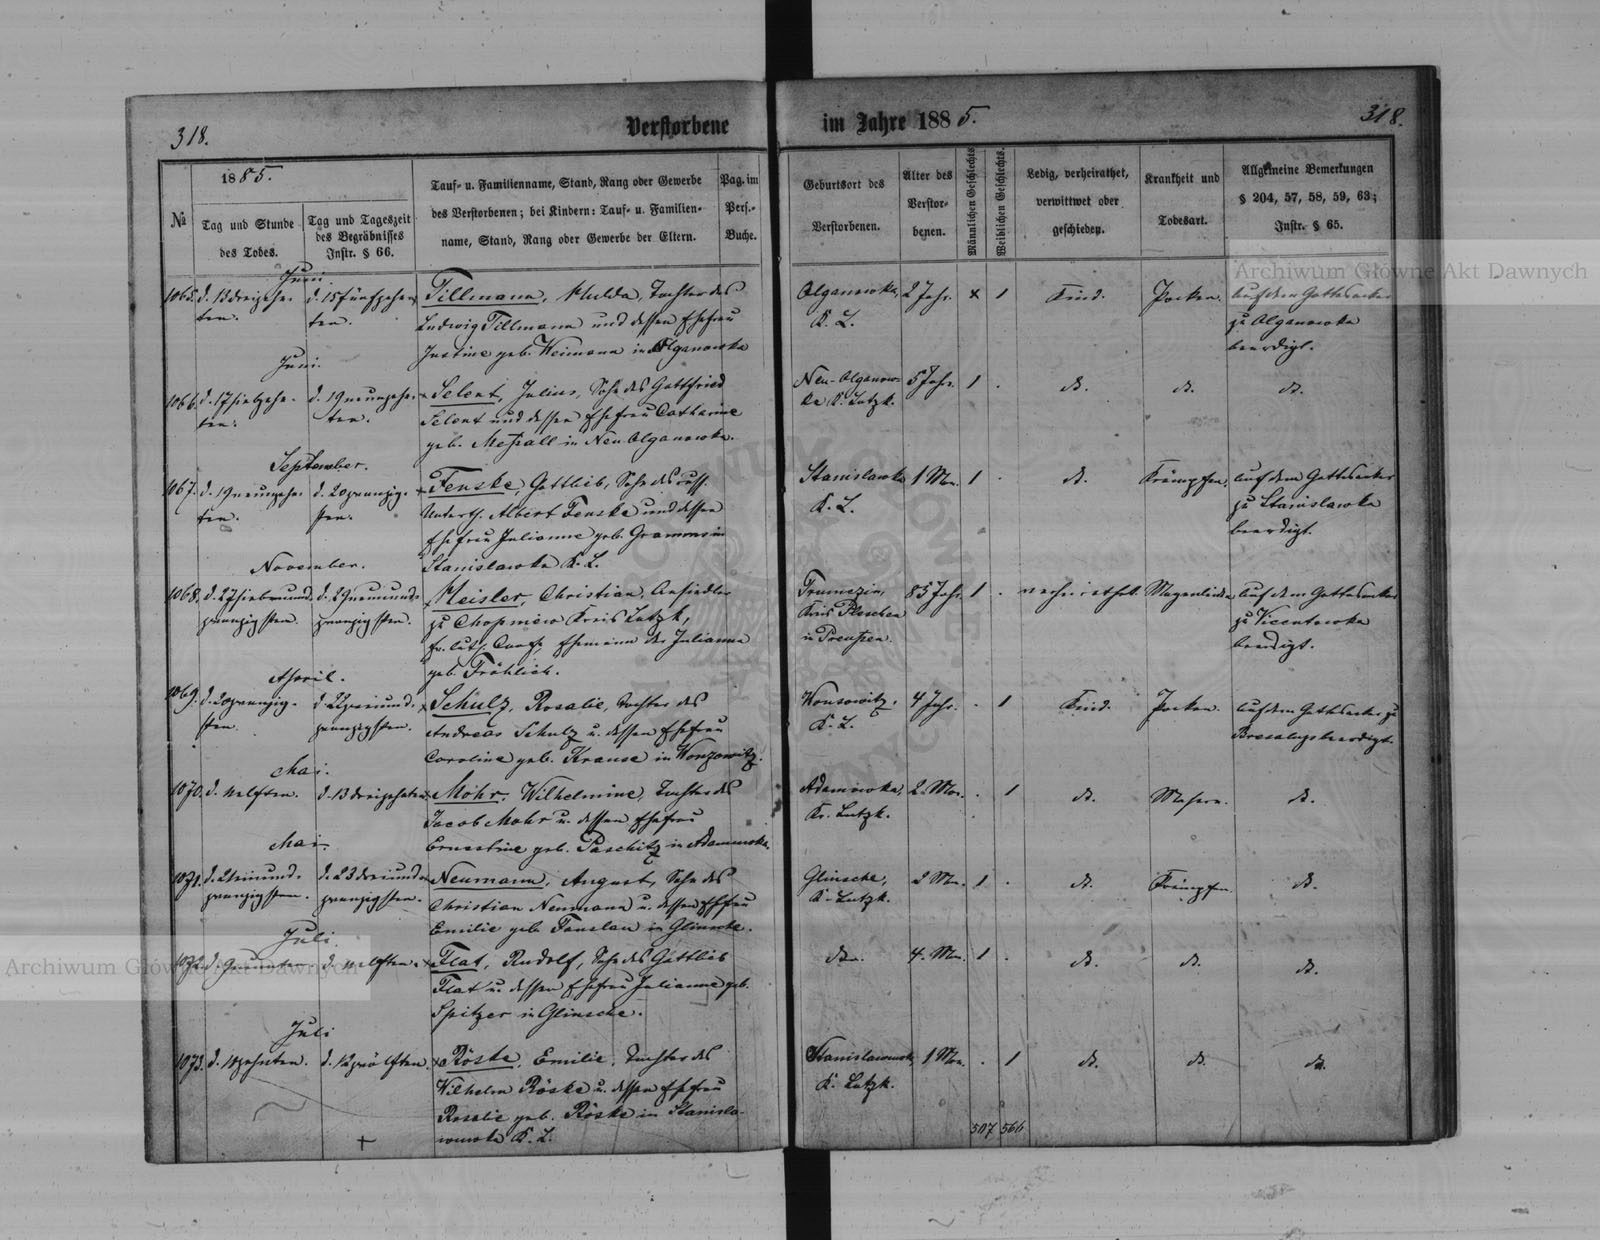 318.
Verstorbene
im Jahre 1885.
318.
№
1885.
Tag und Stunde
des Todes.
Tag und Tageszeit
des Begräbnisses
Instr. § 66.
Tauf- u. Familienname, Stand, Rang oder Gewerbe
des Verstorbenen; bei Kindern: Tauf- u. Familien-
name, Stand, Rang oder Gewerbe der Eltern.
Pag. im
Pers.-
Buche.
Geburtsort des
Verstorbenen.
Alter des
Verstor-
benen.
Männlichen Geschlechts.
Weiblichen Geschlechts.
Ledig, verheirathet,
verwittwet oder
geschieden.
Krankheit und
Todesart.
Allgemeine Bemerkungen
§ 204, 57, 58, 59, 63;
Instr. § 65.
Juni
1065. d. 13 dreizehn-
ten.
d. 15 fünfzehn-
ten.
Tillmann, Hulda, Tochter des
Ludwig Tillmann und dessen Ehefrau
Justine geb. Weimann in Olganowka
Olganowka,
K. L.
2 Jahr.
x
1
Kind.
Pocken.
Auf dem Gottesacker
zu Olganowka
beerdigt.
Juni.
1066. d. 17 siebzehn-
ten.
d. 19 neunzehn-
ten.
Selent, Julius, Sohn des Gottfried
Selent und dessen Ehefrau Catharine
geb. in Neu Olganowka.
Neu-Olganow-
ka K. Lutzk.
5 Jahr.
1
.
do.
do.
do.
September.
1067. d. 19 neunzehn-
ten.
d. 20 zwanzig-
sten.
Fenske, Gottlieb, Sohn des russ.
Unterth. Albert Fenske und dessen
Ehefrau Julianne geb. Gramms in
Stanislawka K. L.
Stanislawka
K. L.
1 Mon.
1
.
do.
Krämpfen.
Auf dem Gottesacker
zu Stanislawka
beerdigt.
November.
1068. d. 27 siebenund-
zwanzigsten.
d. 29 neunund-
zwanzigsten.
Meisler, Christian, Ansiedler
zu Chopniew Kreis Lutzk,
ev. luth. Conf., Ehemann der Julianna
geb. Fröhlich.
Kreis Pleschen
in Preußen.
85 Jahr.
1
.
verheirathet.
Magenleiden.
Auf dem Gottesacker
zu Vicentowka
beerdigt.
April.
1069. d. 20 zwanzig-
sten.
d. 22 zweiund-
zwanzigsten.
Schulz, Rosalie, Tochter des
Andreas Schulz u. dessen Ehefrau
Caroline geb. Krause in Wonzowitz.
Wonsowitz,
K. L.
4 Jahr.
.
1
Kind.
Pocken.
Auf dem Gottesacker zu
beerdigt.
Mai.
1070. d. 11 elften.
d. 13 dreizehnten.
Mohr, Wilhelmine, Tochter des
Jacob Mohr u. dessen Ehefrau
Ernestine geb. Paschitz in Adamowka.
Adamowka,
Kr. Lutzk.
2. Mon.
.
1
do.
Masern.
do.
Mai.
1071. d. 21 einund-
zwanzigsten.
d. 23 dreiund-
zwanzigsten.
Neumann, August, Sohn des
Christian Neumann u. dessen Ehefrau
Emilie geb. Fanslau in Glinsche.
Glinsche,
K. Lutzk.
2 Mon.
1
.
do.
Krämpfen.
do.
Juli.
1072. d. 9 neunten.
d. 11 elften.
Flat, Rudolf, Sohn des Gottlieb
Flat u. dessen Ehefrau Julianne geb.
Spitzer in Glinsche.
do.
4. Mon.
1
.
do.
do.
do.
Juli
1073. d. 10 zehnten.
d. 12 zwölften.
Röske, Emilie, Tochter des
Wilhelm Röske u. dessen Ehefrau
Rosalie geb. Röske in Stanisla-
wowka K. L.
Stanislawowka,
K. Lutzk.
1 Mon.
.
1
do.
do.
do.
507 566
Archiwum Główne Akt Dawnych
Archiwum Główne Akt Dawnych